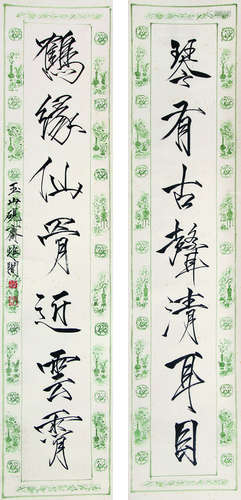 琴有古聲清耳目
鶴緣仙骨近雲霄
玉山